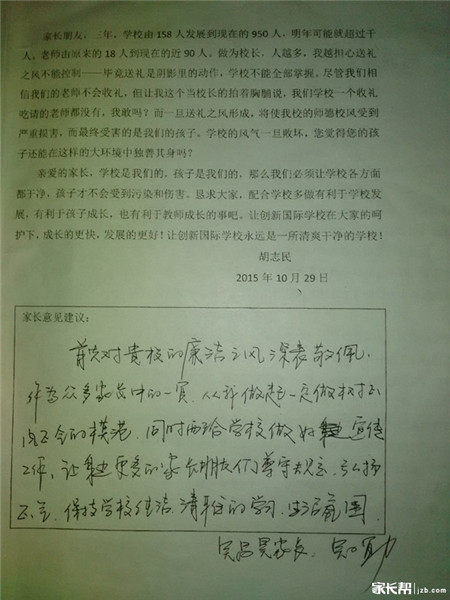 家长朋友，三年，学校由 158 人发展到现在的 950 人，明年可能就超过千
人。老师由原来的 18 人到现在的近 90 人。做为校长，人越多，我越担心送礼
之风不能控制——毕竟送礼是阴影里的动作，学校不能全部掌握，尽管我们相
信我们的老师不会收礼，但让我这个当校长的拍着胸脯说，我们学校一个收礼
吃请的老师都没有，我敢吗？而一旦送礼之风形成，将使我校的师德校风受到
严重损害，而最终受害的是我们的孩子。学校的风气一旦败坏，您觉得您的孩
子还能在这样的大环境中独善其身吗？
亲爱的家长，学校是我们的，孩子是我们的，那么我们必须让学校各方面
都干净，孩子才不会受到污染和伤害。恳求大家，配合学校多做有利于学校发
展，有利于孩子成长，也有利于教师成长的事吧。让创新国际学校在大家的呵
护下，成长的更快，发展的更好！让创新国际学校永远是一所清爽干净的学校！
胡志民
2015 年 10 月 29 日
家长意见建议：
首先对贵校的廉洁之风深表敬佩，
作为众多家长中的一员，从我做起一定做
的模范，同时 给学校做好 宣传
工作，让 更多的家长朋友们尊守规定，弘扬
正气，保持学校 洁、清 的学习、生活氛围
家长，
家长帮 jzb.com